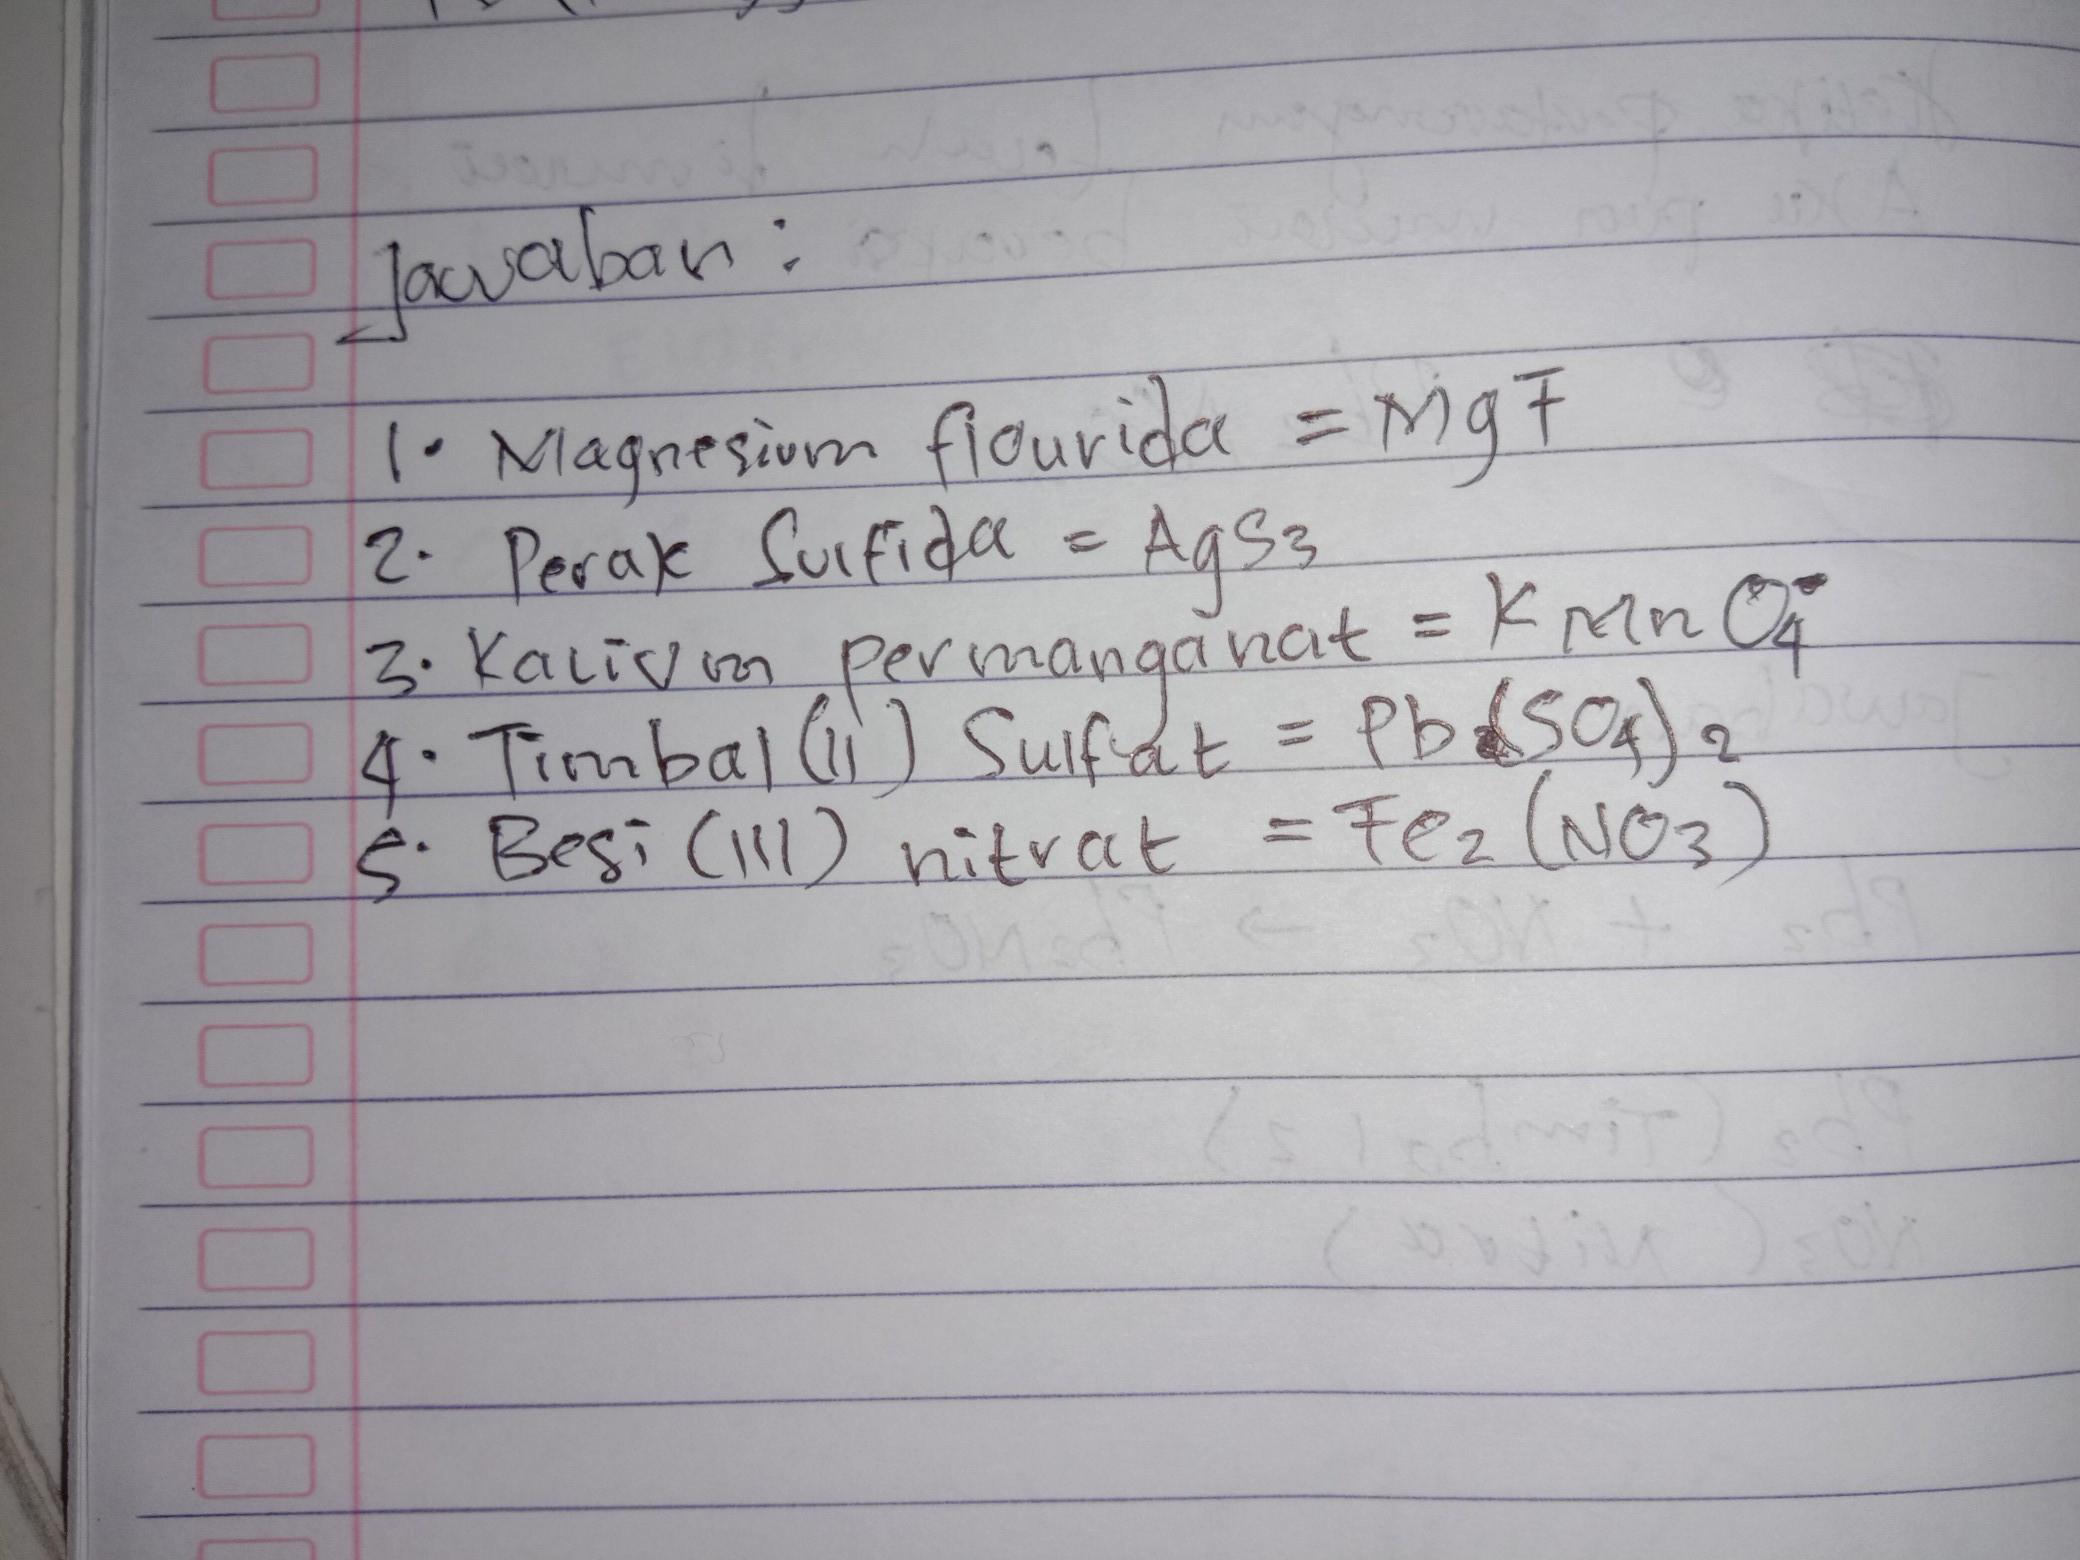 Jawaban :
1. Magnesium flourida = MgF
2. Perak Sulfida = AgS3
3. Kalium permanganat = KMnO4
4. Timbal (II) Sulfat = Pb(SO4)2
5. Besi (III) nitrat = Fe2(NO3)